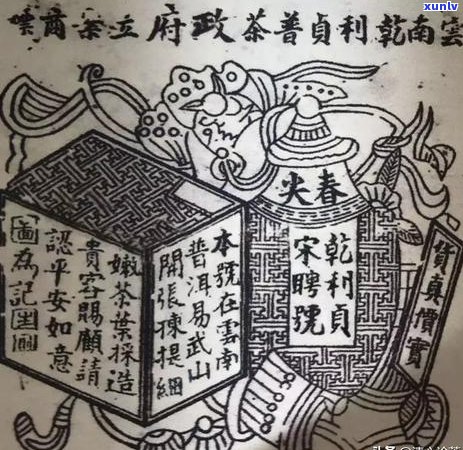 xunlv
雲南乾利貞普茶政府立案商
春尖
乾利貞
宋聘號
貨真價實
本號在雲南
普洱易武山
開張揀提細
嫩茶葉採造
貴客賜顧請
認平安如意
圖為記